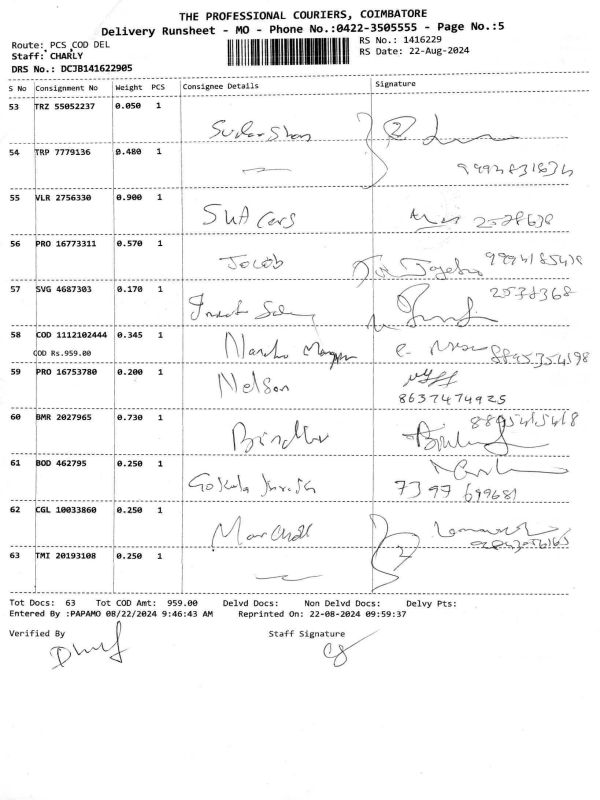 THE PROFESSIONAL COURIERS, COIMBATORE
Delivery Runsheet - MO - Phone No.:0422-3505555 - Page No.:5
Route: PCS COD DEL
RS No.: 1416229
Staff: CHARLY
RS Date: 22-Aug-2024
DRS No.: DCJB141622905
S No Consignment No Weight PCS Consignee Details Signature
53 TRZ 55052237 0.050 1
Sudarshan 2
54 TRP 7779136 0.480 1
55 VLR 2756330 0.900 1
Cars
56 PRO 16773311 0.570 1
Jacob
57 SVG 4687303 0.170 1
2538368
58 COD 1112102444 0.345 1
COD Rs.959.00
8895354198
59 PRO 16753780 0.200 1
Nelson
8637474925
60 BMR 2027965 0.730 1
Bindhu
61 BOD 462795 0.250 1
Gokula
7397 699681
62 CGL 10033860 0.250 1
63 TMI 20193108 0.250 1
2
Tot Docs: 63 Tot COD Amt: 959.00 Delvd Docs: Non Delvd Docs: Delvy Pts:
Entered By :PAPAMO 08/22/2024 9:46:43 AM Reprinted On: 22-08-2024 09:59:37
Verified By Staff Signature